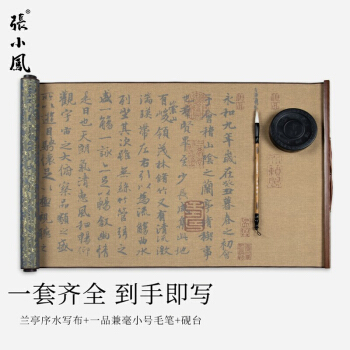 張小鳳®
永和九年歲在癸丑暮春之初會
于會稽山陰之蘭亭脩稧事
也羣賢畢至少長咸集此地
有崇山
峻領茂林脩竹又有清流激
湍暎帶左右引以為流觴曲水
列坐其次雖無絲竹管弦之
盛一觴一詠亦足以暢敘幽情
是日也天朗氣清惠風和暢仰
觀宇宙之大俯察品類之盛
一套齐全 到手即写
兰亭序水写布+一品兼毫小号毛笔+砚台